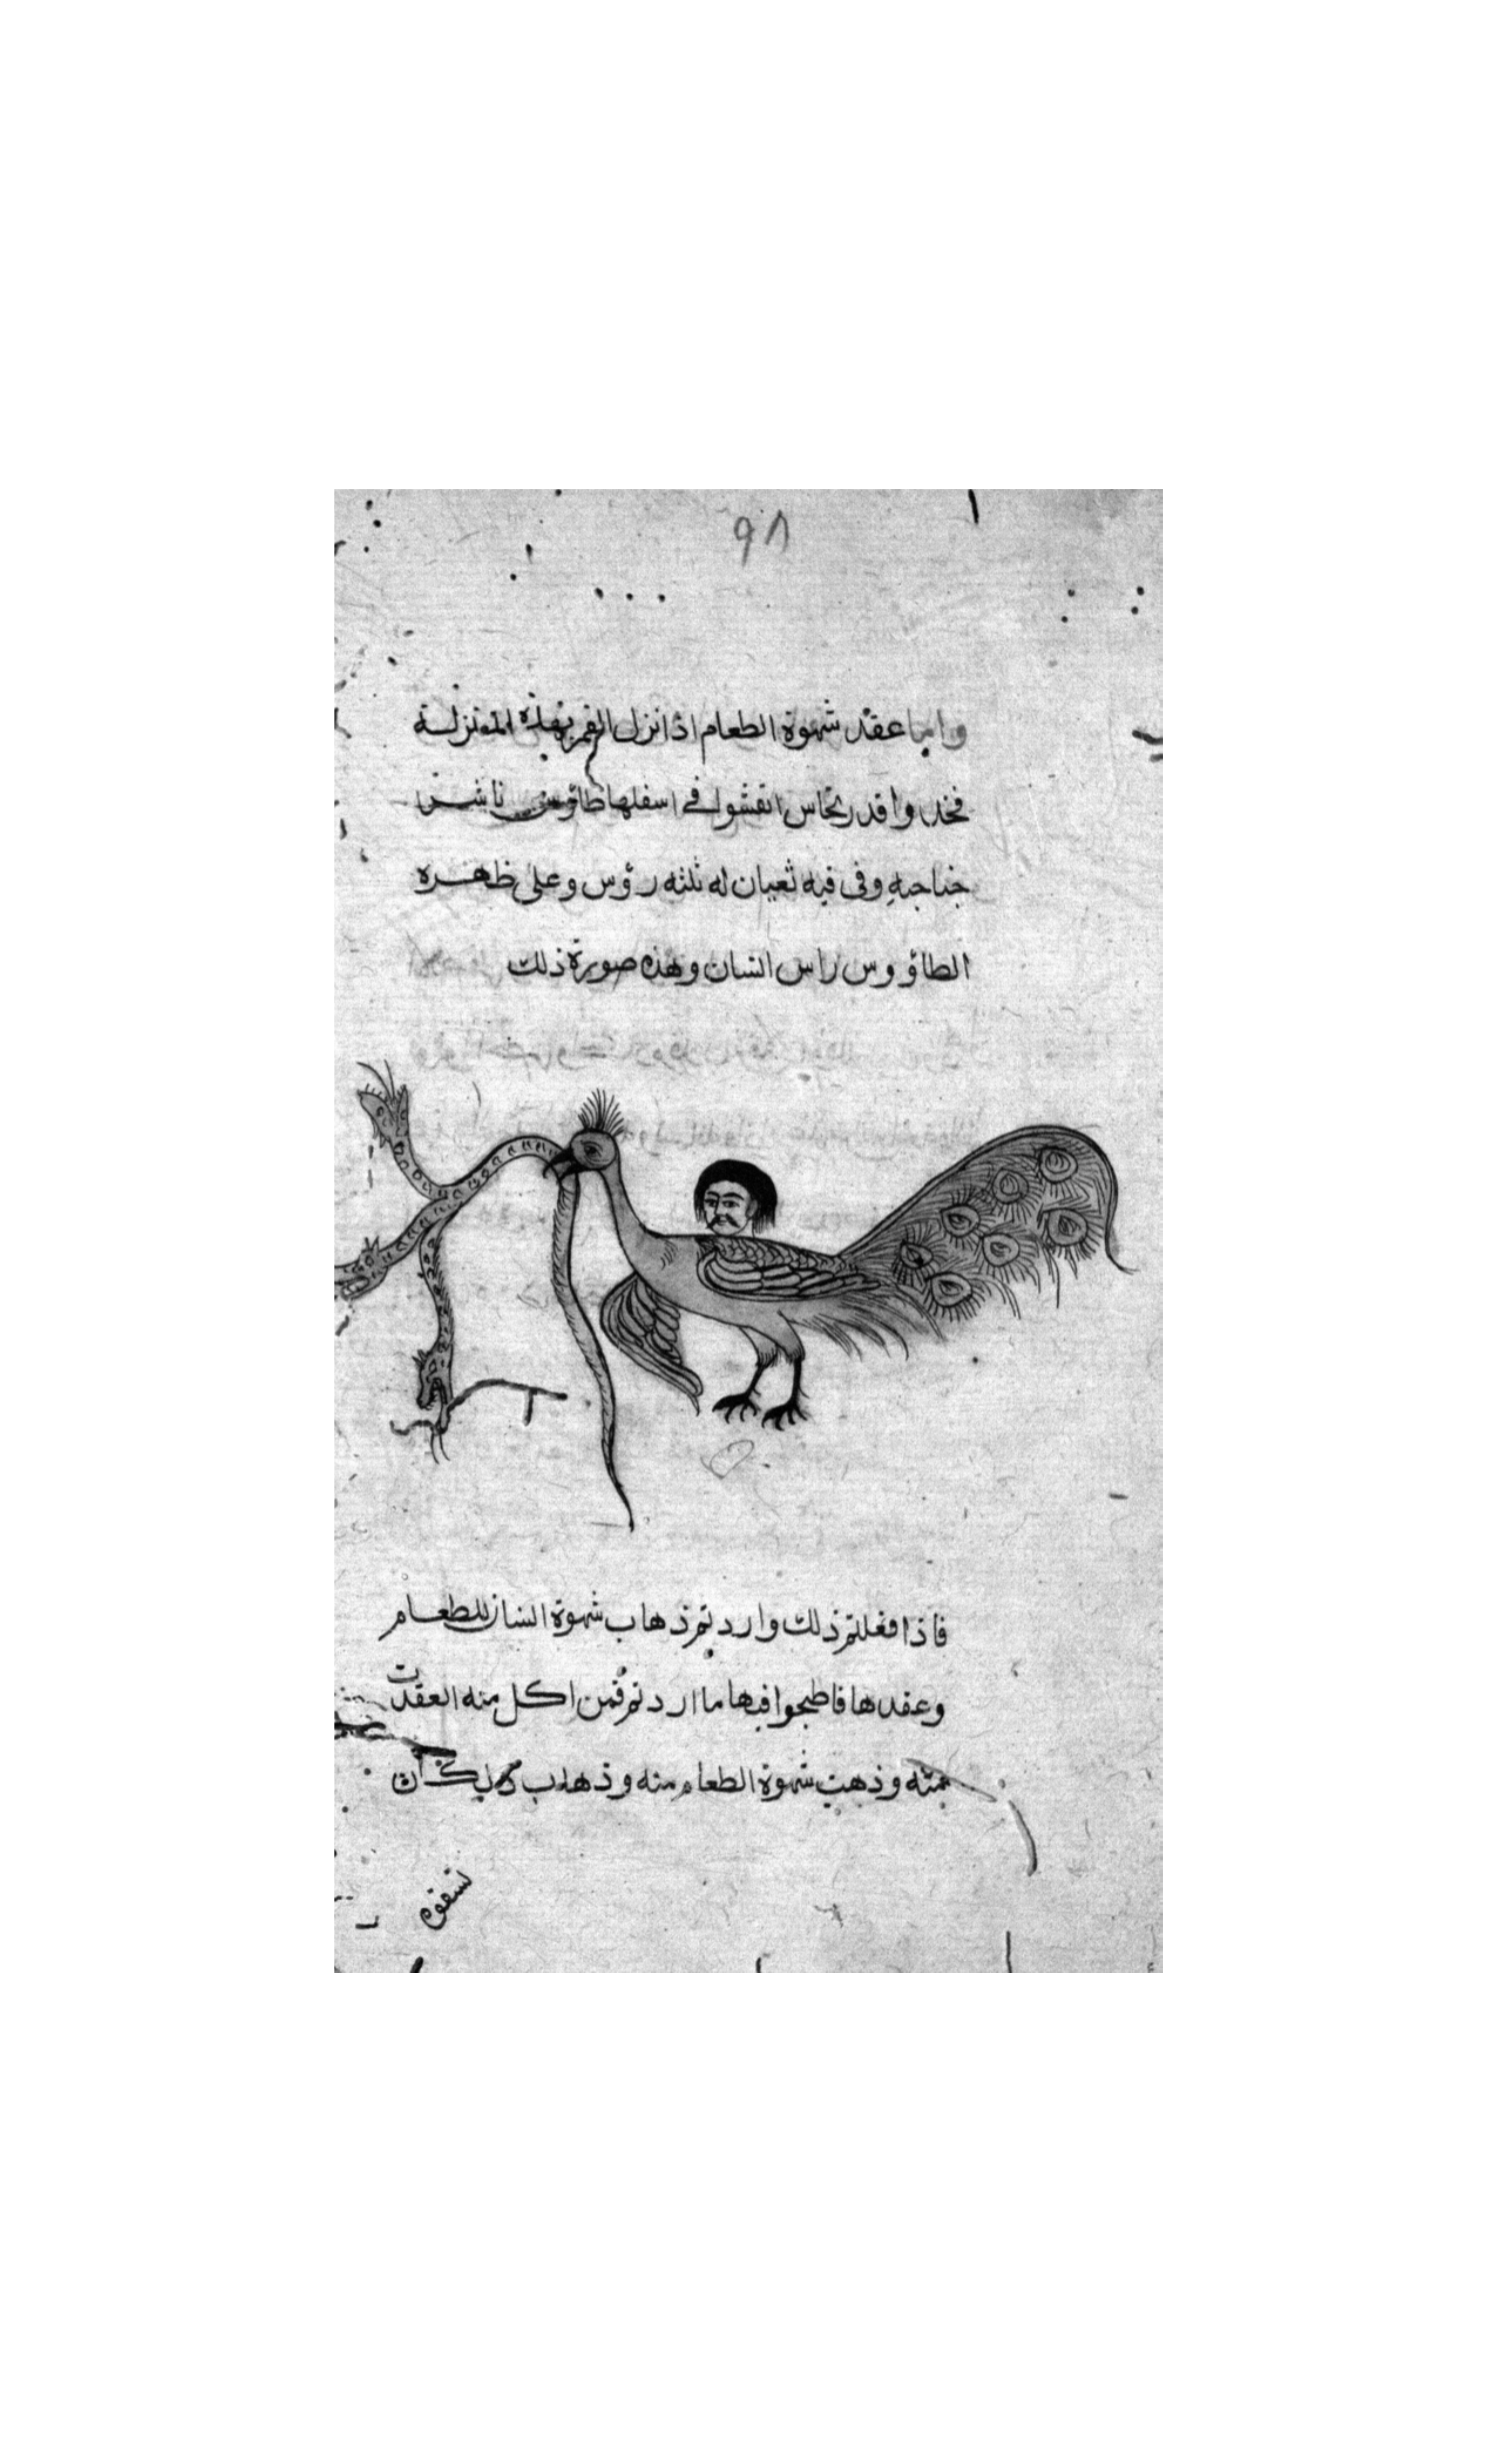 ٩٨
واما عقد شهوة الطعام اذا نزل القمر بهذه المنزلة
فخذوا قدر نحاس انقشوا في اسفلها طاؤس ناشرا
جناحيه وفى فيه ثعبان له ثلثه رؤس وعلى ظهره
الطاؤوس راس انسان وهذه صورة ذلك
فاذا فعلتم ذلك واردتم ذهاب شهوة انسان للطعام
وعقدها فاطبخوا فيها ما اردتم فمن اكل منه العقدت
وذهبت شهوة الطعام منه وذهاب ذلك ان